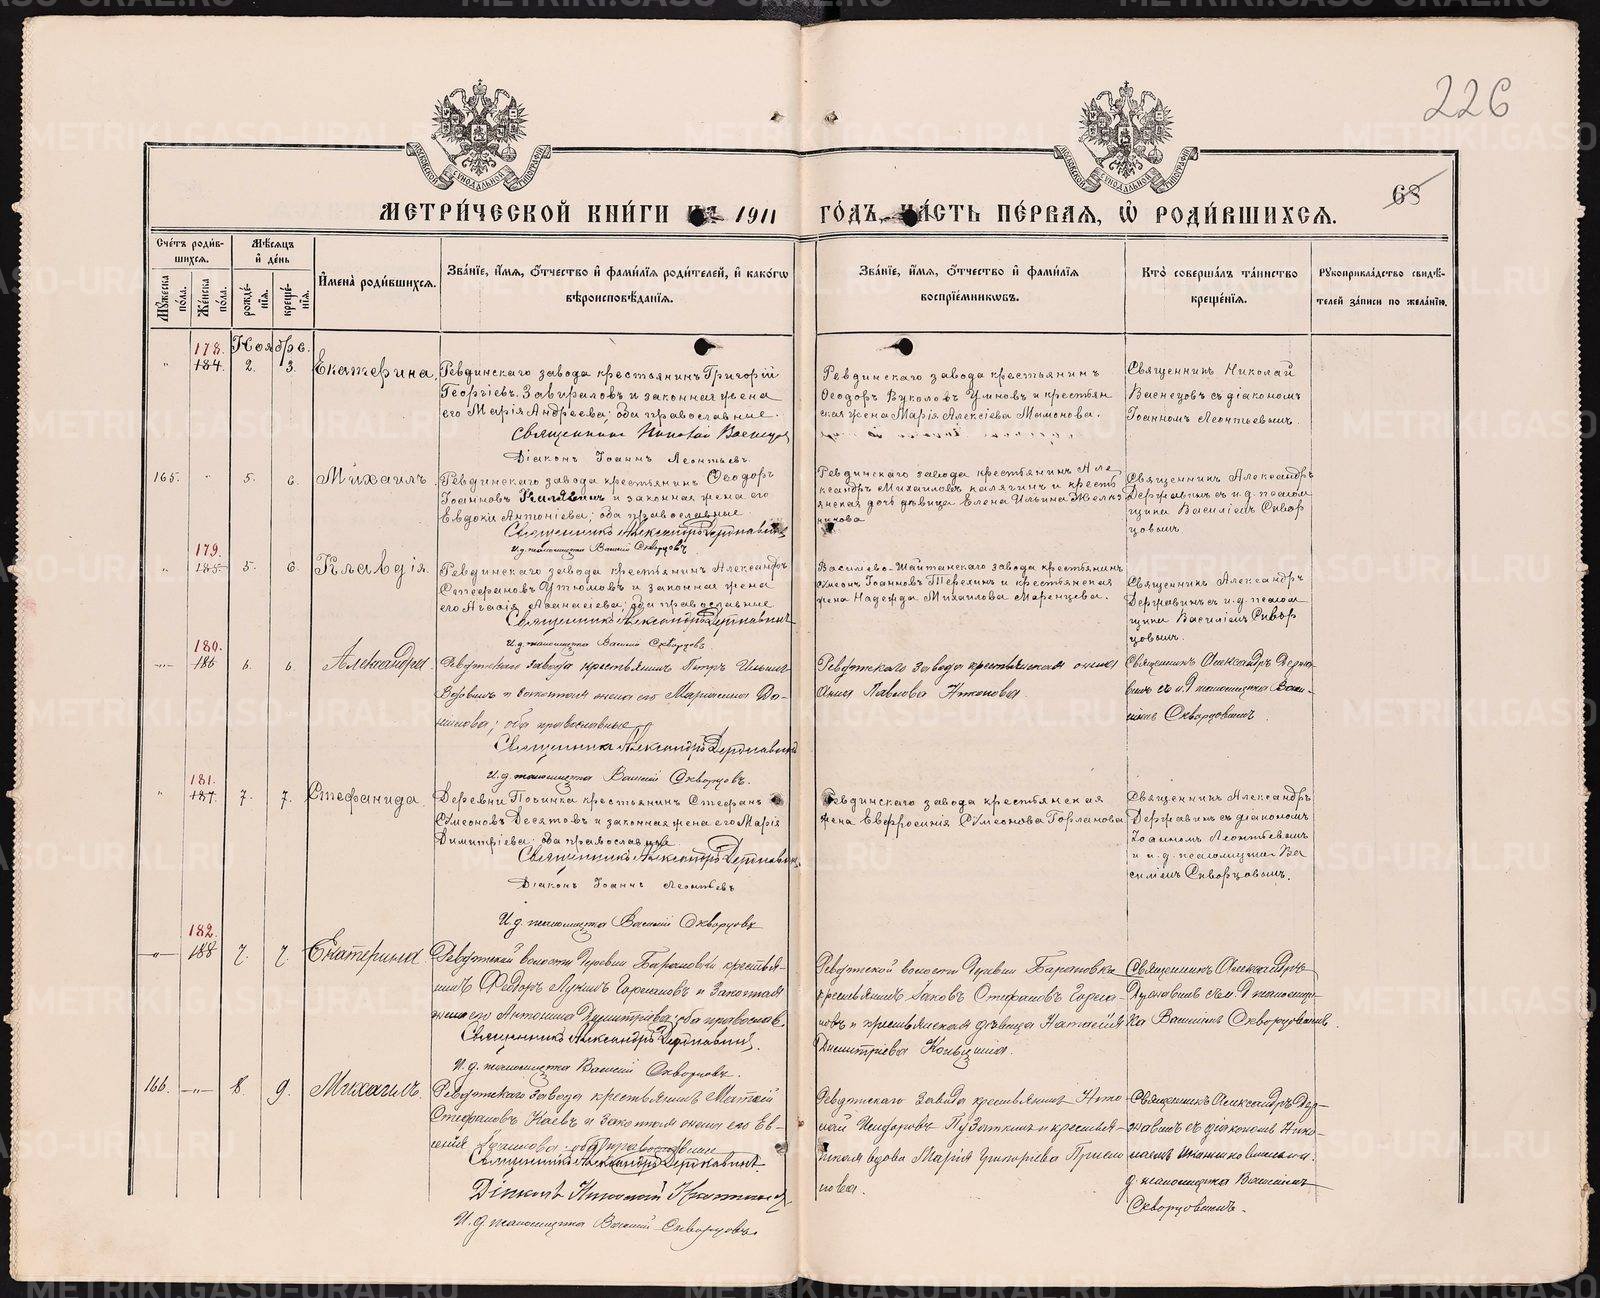 226
68
МЕТРИЧЕСКОЙ КНИГИ НА 1911 ГОДЪ, ЧАСТЬ ПЕРВАЯ, Ѡ РОДИВШИХСЯ.
Счетъ родившихся.
Мужеска пола.
Женска пола.
Мѣсяцъ и день
рожденія.
крещенія.
Имена родившихся.
Званіе, имя, отчество и фамилія родителей, и какогѡ
вѣроисповѣданія.
Званіе, имя, отчество и фамилія
воспріемникѡвъ.
Кто совершалъ таинство
крещенія.
Рукоприкладство свидѣ-
телей записи по желанію.
Ноябрь.
178.
184. 2. 3. Екатерина
Ревдинскаго завода крестьянинъ Григорій
Георгіевъ Забираловъ и законная жена
его Марія Андреева; оба православные.
Священникъ Николай Васнецов
Діаконъ Іоаннъ Леонтьевъ
Ревдинскаго завода крестьянинъ
Ѳеодоръ Вуколовъ Умновъ и крестьян
ская жена Марія Алексіева Мамонова.
Священникъ Николай
Васнецовъ съ діакономъ
Іоанномъ Леонтьевымъ.
165. 5. 6. Михаилъ
Ревдинскаго завода крестьянинъ Ѳеодоръ
Іоанновъ и законная жена его
Евдокія Антоніева; оба православные
Священникъ Александръ Державинъ
И.д. псаломщика Василій Скворцовъ
Ревдинскаго завода крестьянинъ Але
ксандръ Михаиловъ Калягинъ и крестья
янская дочь дѣвица Елена Ильина
Священникъ Александръ
Державинъ съ и.д. псалом
щика Василіемъ Сквор
цовымъ.
179.
185 5. 6. Клавдія.
Ревдинскаго завода крестьянинъ Александръ
Стефановъ Утюмовъ и законная жена
его Агаѳія Аѳанасіева; оба православные
Священникъ Александръ Державинъ
И.д. псаломщика Василій Скворцовъ
Васильево-Шайтанскаго завода крестьянинъ
Симеонъ Іоанновъ Терехинъ и крестьянская
жена Надежда Михаилова Маренцева.
Священникъ Александръ
Державинъ съ и.д. псалом
щика Василіемъ Сквор
цовымъ.
180.
186 6. 6. Александра
Ревдинскаго завода крестьянинъ Петръ Ильинъ
и законная жена его Маріамна Да-
нилова; оба православные
Священникъ Александръ Державинъ
И.д. псаломщика Василій Скворцовъ.
Ревдинскаго завода крестьянская жена
Анна Павлова
Священникъ Александръ Держа-
винъ съ и.д псаломщика Васи-
ліемъ Скворцовымъ.
181.
187. 7. 7. Стефанида
Деревни Починка крестьянинъ Стефанъ
Симеоновъ Десятовъ и законная жена его Марія
Димитріева; оба православные.
Священникъ Александръ Державинъ
Діаконъ Іоаннъ Леонтьевъ
И.д. псаломщика Василій Скворцовъ
Ревдинскаго завода крестьянская
жена Евфросинія Симеонова Горланова
Священникъ Александръ
Державинъ съ діакономъ
Іоанномъ Леонтьевымъ
и и.д. псаломщика Ва
силіемъ Скворцовымъ.
182.
188 7. 7. Екатерина
Ревдинской волости деревни Барановки крестья-
нинъ Ѳедоръ Лукинъ и законная
жена его Антонина Димитріева; оба православ.
Священникъ Александръ Державинъ.
И.д. псаломщика Василій Скворцовъ.
Ревдинской волости деревни Барановка
крестьянинъ Іаковъ Стефановъ
и крестьянская дѣвица Наталія
Димитріева
Священникъ Александръ
Державинъ съ и.д псаломщи-
ка Василіемъ Скворцовымъ.
166. 8. 9. Михаилъ
Ревдинскаго завода крестьянинъ Матѳій
Стефановъ и законная жена его Ев-
оба православные
Священникъ Александръ Державинъ
Діаконъ Николай
И.д псаломщика Василій Скворцовъ.
Ревдинскаго завода крестьянинъ Нико-
лай Исидоровъ и крестья-
нская вдова Марія Григорьева
Священникъ Александръ Дер-
жавинъ съ діакономъ Нико-
лаемъ и и.
д. псаломщика Василіемъ
Скворцовымъ.